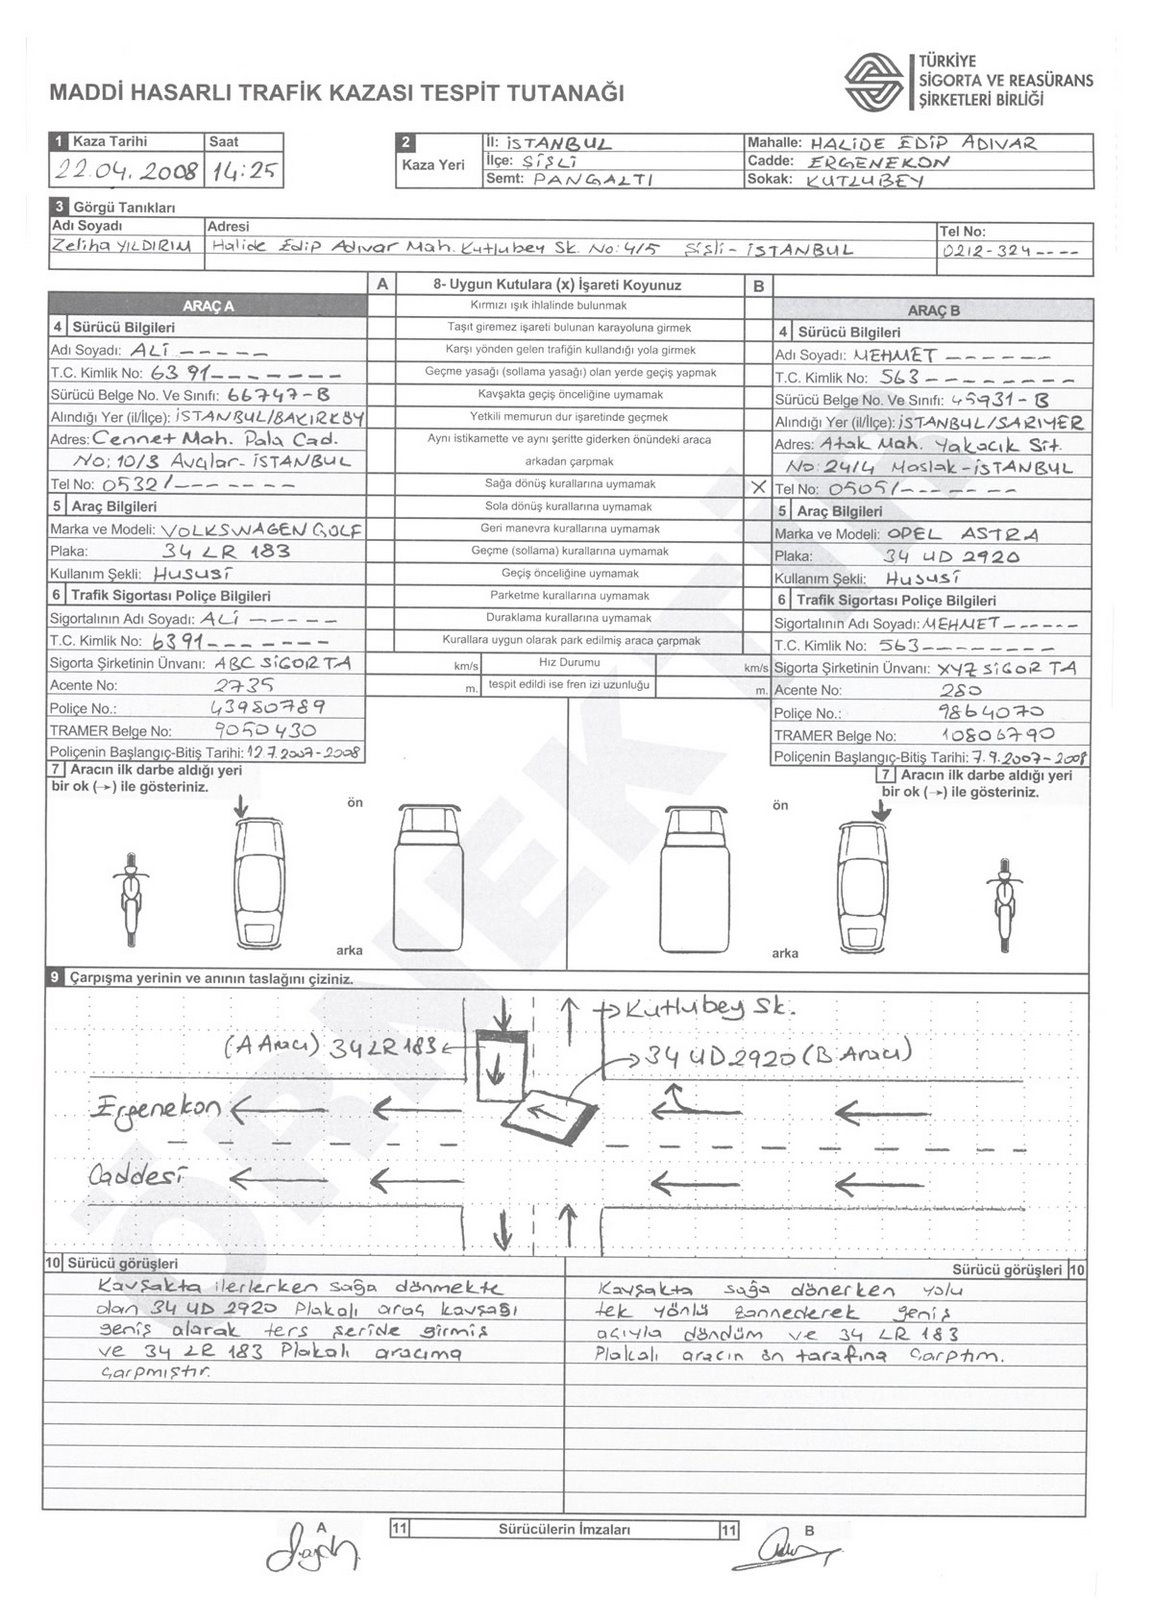 TÜRKİYE
SİGORTA VE REASÜRANS
ŞİRKETLERİ BİRLİĞİ
MADDİ HASARLI TRAFİK KAZASI TESPİT TUTANAĞI
1 Kaza Tarihi Saat
22.04.2008 14:25
2 Kaza Yeri
İl: İSTANBUL
İlçe: ŞİŞLİ
Semt: PANGALTI
Mahalle: HALİDE EDİP ADIVAR
Cadde: ERGENEKON
Sokak: KUTLUBEY
3 Görgü Tanıkları
Adı Soyadı Adresi Tel No:
Zeliha YILDIRIM Halide Edip Adıvar Mah. Kutlubey Sk. No:4/5 Şişli-İSTANBUL 0212-324----
A 8- Uygun Kutulara (x) İşareti Koyunuz B
Kırmızı ışık ihlalinde bulunmak
Taşıt giremez işareti bulunan karayoluna girmek
Karşı yönden gelen trafiğin kullandığı yola girmek
Geçme yasağı (sollama yasağı) olan yerde geçiş yapmak
Kavşakta geçiş önceliğine uymamak
Yetkili memurun dur işaretinde geçmek
Aynı istikamette ve aynı şeritte giderken önündeki araca
arkadan çarpmak
Sağa dönüş kurallarına uymamak X
Sola dönüş kurallarına uymamak
Geri manevra kurallarına uymamak
Geçme (sollama) kurallarına uymamak
Geçiş önceliğine uymamak
Parketme kurallarına uymamak
Duraklama kurallarına uymamak
Kurallara uygun olarak park edilmiş araca çarpmak
km/s Hız Durumu km/s
m. tespit edildi ise fren izi uzunluğu m.
ARAÇ A
4 Sürücü Bilgileri
Adı Soyadı: ALİ -----
T.C. Kimlik No: 6391-------
Sürücü Belge No. Ve Sınıfı: 66747-B
Alındığı Yer (il/İlçe): İSTANBUL/BAKIRKÖY
Adres: Cennet Mah. Pala Cad.
No: 10/3 Avcılar-İSTANBUL
Tel No: 0532/-------
5 Araç Bilgileri
Marka ve Modeli: VOLKSWAGEN GOLF
Plaka: 34 LR 183
Kullanım Şekli: HUSUSİ
6 Trafik Sigortası Poliçe Bilgileri
Sigortalının Adı Soyadı: ALİ -----
T.C. Kimlik No: 6391-------
Sigorta Şirketinin Ünvanı: ABC SİGORTA
Acente No: 2735
Poliçe No.: 43980789
TRAMER Belge No: 9050430
Poliçenin Başlangıç-Bitiş Tarihi: 12.7.2007-2008
7 Aracın ilk darbe aldığı yeri
bir ok (→) ile gösteriniz.
ön
arka
ARAÇ B
4 Sürücü Bilgileri
Adı Soyadı: MEHMET ------
T.C. Kimlik No: 563--------
Sürücü Belge No. Ve Sınıfı: 45931-B
Alındığı Yer (il/İlçe): İSTANBUL/SARIYER
Adres: Atak Mah. Yakacık Sit.
No: 24/4 Maslak-İSTANBUL
Tel No: 0505/-------
5 Araç Bilgileri
Marka ve Modeli: OPEL ASTRA
Plaka: 34 UD 2920
Kullanım Şekli: HUSUSİ
6 Trafik Sigortası Poliçe Bilgileri
Sigortalının Adı Soyadı: MEHMET------
T.C. Kimlik No: 563--------
Sigorta Şirketinin Ünvanı: XYZ SİGORTA
Acente No: 280
Poliçe No.: 9864070
TRAMER Belge No: 10806790
Poliçenin Başlangıç-Bitiş Tarihi: 7.9.2007-2008
7 Aracın ilk darbe aldığı yeri
bir ok (→) ile gösteriniz.
ön
arka
ÖRNEKTİR
9 Çarpışma yerinin ve anının taslağını çiziniz.
Kutlubey Sk.
(A Aracı) 34 LR 183
34 UD 2920 (B Aracı)
Ergenekon
Caddesi
10 Sürücü görüşleri
Kavşakta ilerlerken sağa dönmekte
olan 34 UD 2920 Plakalı araç kavşağı
geniş alarak ters şeride girmiş
ve 34 LR 183 Plakalı aracıma
çarpmıştır.
Sürücü görüşleri 10
Kavşakta sağa dönerken yolu
tek yönlü zannederek geniş
açıyla döndüm ve 34 LR 183
Plakalı aracın ön tarafına çarptım.
A 11 Sürücülerin İmzaları 11 B